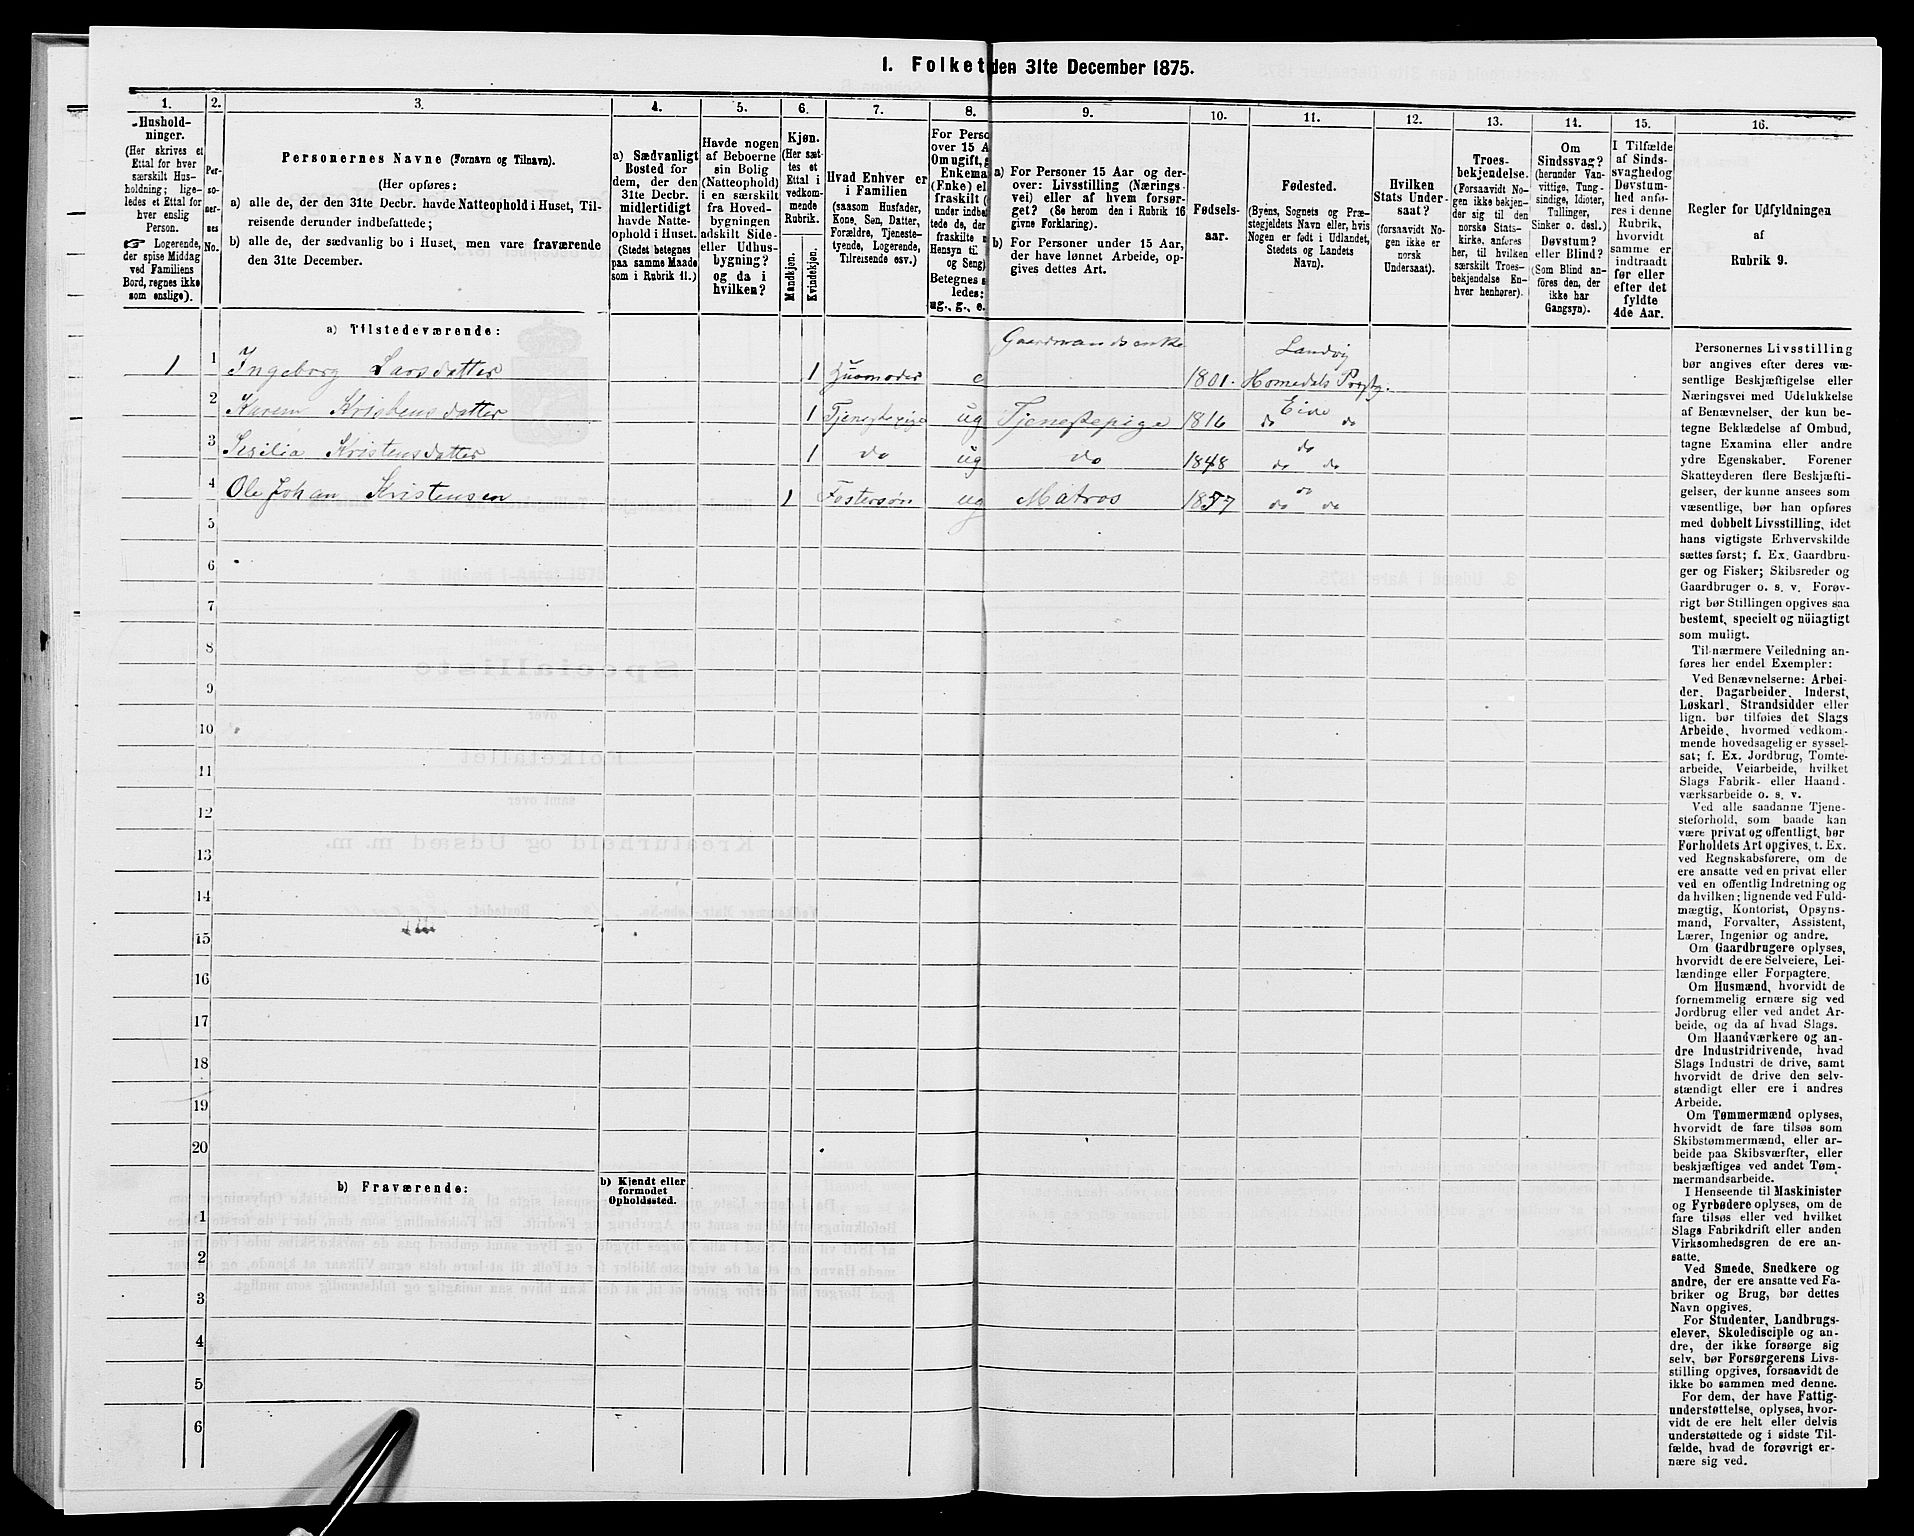 I. Folket den 31te December 1875.
1. 2. 3. 4. 5. 6. 7. 8. 9. 10. 11. 12. 13. 14. 15. 16.
Husholdninger.
(Her skrives et
Ettal for hver
særskilt Hus-
holdning; lige-
ledes et Ettal for
hver enslig
Person.
☞ Logerende,
der spise Middag
ved Familiens
Bord, regnes ikke
som enslige).
Per-
so-
ner-
nes
No.
Personernes Navne (Fornavn og Tilnavn).
(Her opføres:
a) alle de, der den 31te Decbr. havde Natteophold i Huset, Til-
reisende derunder indbefattede;
b) alle de, der sædvanlig bo i Huset, men vare fraværende
den 31te December.
a) Sædvanligt
Bosted for
dem, der den
31te Decbr.
midlertidigt
havde Natte-
ophold i Huset.
(Stedet betegnes
paa samme Maade
som i Rubrik 11.)
Havde nogen
af Beboerne
sin Bolig
(Natteophold)
i en særskilt
fra Hoved-
bygningen
adskilt Side-
eller Udhus-
bygning?
og da i
hvilken?
Kjøn.
(Her sæt-
tes et
Ettal i
vedkom-
mende
Rubrik.
Mandkjøn.
Kvindekjøn.
Hvad Enhver er
i Familien
(saasom Husfader,
Kone, Søn, Datter,
Forældre, Tjeneste-
tyende, Logerende,
Tilreisende osv.).
For Perso
over 15 A
Om ugift, g
Enkema
(Enke) el
fraskilt (
under indbe
tede de, der
fraskilte
Hensyn til
og Seng)
Betegnes s
ledes:
ug., g., e.
a) For Personer 15 Aar og der-
over: Livsstilling (Nærings-
vei) eller af hvem forsør-
get? (Se herom den i Rubrik 16
givne Forklaring).
b) For Personer under 15 Aar,
der have lønnet Arbeide, op-
gives dettes Art.
Fødsels-
aar.
Fødested.
(Byens, Sognets og Præ-
stegjeldets Navn eller, hvis
Nogen er født i Udlandet,
Stedets og Landets
Navn).
Hvilken
Stats Under-
saat?
(forsaavidt No-
gen ikke er
norsk
Undersaat).
Troes-
bekjendelse.
(Forsaavidt No-
gen ikke bekjen-
der sig til den
norske Stats-
kirke, anføres
her, til hvilken
særskilt Troes-
bekjendelse En-
hver henhører).
Om
Sindssvag?
(herunder Van-
vittige, Tung-
sindige, Idioter,
Tullinger,
Sinker o. desl.)
Døvstum?
eller Blind?
(Som Blind an-
føres den, der
ikke har
Gangsyn).
I Tilfælde
af Sinds-
svaghed og
Døvstum-
hed anfø-
res i denne
Rubrik,
hvorvidt
samme er
indtraadt
før eller
efter det
fyldte
4de Aar.
Regler for Udfyldningen
af
Rubrik 9.
a) Tilstedeværende:
Gaardmandsenke Landvig
1 1 Ingeborg Larsdatter 1 Husmoder e 1801. Homedals Prstg.
2 Karen Kristensdatter 1 Tjenestepige ug Tjenestepige 1816 do Eide do
3 Sesilia Kristensdatter 1 do ug do 1848 do do do
4 Ole Johan Kristensen 1 Fostersøn ug Matros 1857 do do do
5
6
7
8
9
10
11
12
13
14
15
16
17
18
19
20
b) Fraværende:
b) Kjendt eller
formodet
Opholdssted.
1
2
3
4
5
6
Personernes Livsstilling
bør angives efter deres væ-
sentlige Beskjæftigelse eller
Næringsvei med Udelukkelse
af Benævnelser, der kun be-
tegne Beklædelse af Ombud,
tagne Examina eller andre
ydre Egenskaber. Forener
Skatteyderen flere Beskjæfti-
gelser, der kunne ansees som
væsentlige, bør han opføres
med dobbelt Livsstilling, idet
hans vigtigste Erhvervskilde
sættes først; f. Ex. Gaardbru-
ger og Fisker; Skibsreder og
Gaardbruger o. s. v. Forøv-
rigt bør Stillingen opgives saa
bestemt, specielt og nöiagtigt
som muligt.
Til nærmere Veiledning an-
føres her endel Exempler:
Ved Benævnelserne: Arbei-
der, Dagarbeider, Inderst,
Løskarl, Strandsidder eller
lign. bør tilføies det Slags
Arbeide, hvormed vedkom-
mende hovedsagelig er syssel-
sat; f. Ex. Jordbrug, Tomte-
arbeide, Veiarbeide, hvilket
Slags Fabrik- eller Haand-
værksarbeide o. s. v.
Ved alle saadanne Tjene-
steforhold, som baade kan
være privat og offentligt, bør
Forholdets Art opgives, t. Ex.
ved Regnskabsførere, om de
ere ansatte ved en privat eller
ved en offentlig Indretning og
da hvilken; lignende ved Fuld-
mægtig, Kontorist, Opsyns-
mand, Forvalter, Assistent,
Lærer, Ingeniør og andre.
Om Gaardbrugere oplyses,
hvorvidt de ere Selveiere, Lei-
lændinge eller Forpagtere.
Om Husmænd, hvorvidt de
fornemmelig ernære sig ved
Jordbrug eller ved andet Ar-
beide, og da af hvad Slags.
Om Haandværkere og an-
dre Industridrivende, hvad
Slags Industri de drive, samt
hvorvidt de drive den selv-
stændigt eller ere i andres
Arbeide.
Om Tømmermænd oplyses,
hvorvidt de fare tilsøs som
Skibstømmermænd, eller ar-
beide paa Skibsværfter, eller
beskjæftiges ved andet Tøm-
mermandsarbeide.
I Henseende til Maskinister
og Fyrbødere oplyses, om de
fare tilsøs eller ved hvilket
Slags Fabrikdrift eller anden
Virksomhedsgren de ere an-
satte.
Ved Smede, Snedkere og
andre, der ere ansatte ved Fa-
briker og Brug, bør dettes
Navn opgives.
For Studenter, Landbrugs-
elever, Skoledisciple og an-
dre, der ikke forsørge sig
selv, bør Forsørgerens Livs-
stilling opgives, forsaavidt de
ikke bo sammen med denne.
For dem, der have Fattig-
understøttelse, oplyses, hvor-
vidt de ere helt eller delvis
understøttede og i sidste Til-
fælde, hvad de forøvrigt er-
nære sig ved.